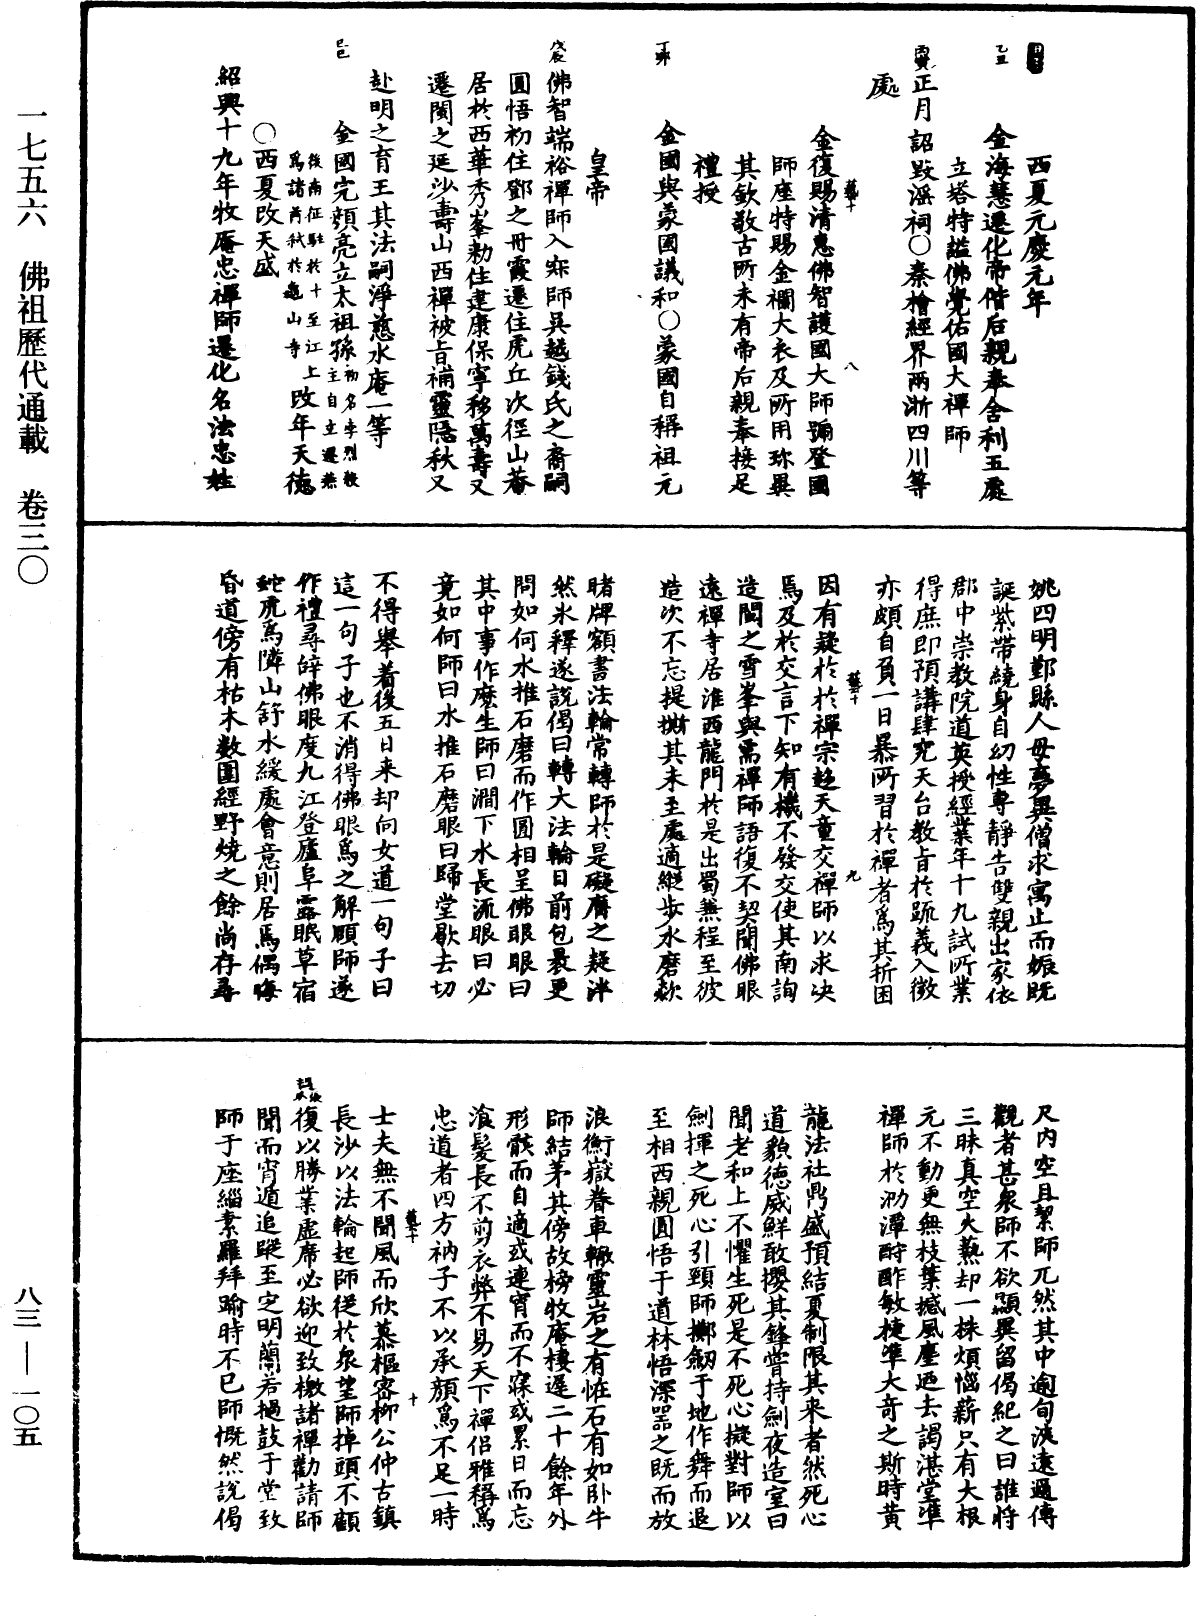 西夏元慶元年
乙丑
金海慧遷化帝偕后親奉舍利五處
立塔特謚佛覺佑國大禪師
丙寅正月詔毀淫祠〇秦檜經界兩浙四川等
處
金復賜清惠佛智護國大師䟽登國
師座特賜金襴大衣及所用珎異
其欽敬古所未有帝后親奉接足
禮授
丁卯
金國與蒙國議和〇蒙國自稱祖元
皇帝
戊辰佛智端裕禪師入㝎師吳越錢氏之裔嗣
圓悟初住鄧之丹霞遷住虎丘次徑山菴
居於西華秀峯勅住建康保寧移萬壽又
遷閩之延沙壽山西禪被旨補靈隱秋又
赴明之育王其法嗣淨慈水庵一等
己巳
金國完顏亮立太祖孫初名孛烈殺主自立遷燕
後南征駐於十至江上爲諸苪弒於龜山寺改年天德
〇西夏改天盛
紹興十九年牧庵忠禪師遷化名法忠姓
姚四明鄞縣人母夢異僧求寓止而娠既
誕紫帶繞身自幼性專靜告雙親出家依
郡中崇教院道英授經業年十九試所業
得庶即預講肆究天台教旨於䟽義入微
亦頗自負一日暴所習於禪者爲其折困
因有疑於於禪宗趍天童交禪師以求决
焉及於交言下知有機不發交使其南詢
造閩之雪峯與需禪師語復不契聞佛眼
遠禪寺居淮西龍門於是出蜀兼程至彼
造次不忘提撕其未至處適縱步水磨欻
睹牌額書法輪常轉師於是礙膺之疑泮
然氷釋遂說偈曰轉大法輪目前包裹更
問如何水推石磨而作圓相呈佛眼眼曰
其中事作麽生師曰澗下水長流眼曰必
竟如何師曰水推石磨眼曰歸堂歇去切
不得舉着後五日来却向女道一句子曰
這一句子也不消得佛眼爲之解願師遂
作禮尋辭佛眼度九江登廬阜露眠草宿
蛇虎爲隣山舒水緩處會意則居焉偶晦
昏道傍有枯木数圍經野燒之餘尚存尋
尺内空且絜師兀然其中逾旬浹遠邇傳
觀者甚衆師不欲顯異留偈紀之曰誰將
三昧真空火爇却一株煩惱薪只有大根
元不動更無枝葉撼風塵廼去謁湛堂準
禪師於泐潭酧酢敏捷準大奇之斯時黄
龍法社鼎盛預結夏制限其来者然死心
道貌德威鮮敢攖其鋒甞持劍夜造室曰
聞老和上不懼生死是不死心擬對師以
劍揮之死心引頸師擲劒于地作舞而退
至相西親圓悟于道林悟深器之既而放
浪衡嶽眷車轍靈岩之有恠石有如卧牛
師結茅其傍故榜牧庵棲遲二十餘年外
形骸而自適或連宵而不寐或累日而忘
飡髮長不剪衣弊不易天下禪侶雅稱爲
忠道者四方衲子不以承顔爲不足一時
士夫無不聞風而欣慕樞密柳公仲古鎮
長沙以法輪起師從於衆望師掉頭不顧
復以勝業虚席必欲迎致檄諸禪勸請師
聞而宵遁追蹤至定明蘭若撾鼓于堂致
師于座緇素羅拜踰時不已師慨然說偈
一七五六 佛祖歷代通載 卷三〇
八三——一〇五